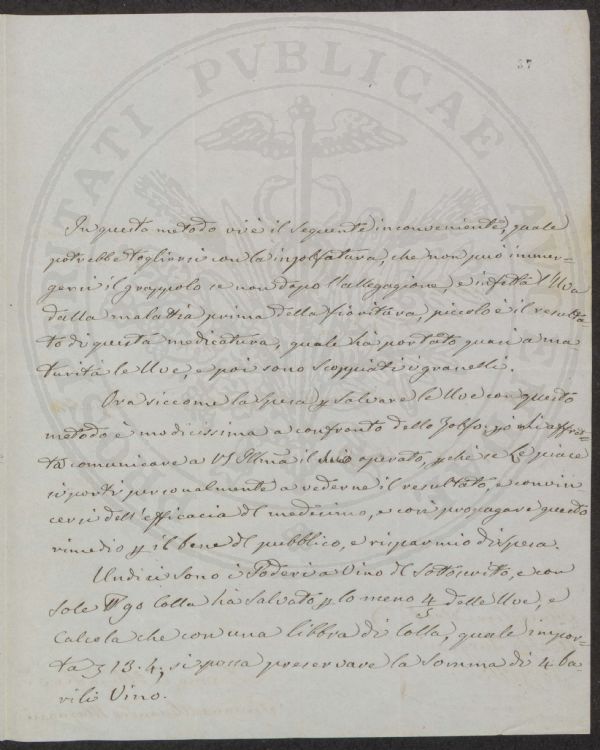 37
In questo metodo vi è il seguente inconveniente, quale
potrebbe togliersi con la inzolfatura, che non può immer-
gersi il grappolo se non dopo l'allegagione, e infetta l'Uva
dalla malattia prima della fioritura, piccolo è il resulta
to di questa medicatura, quale ha portato quasi a ma
turità le Uve, e poi sono scoppiati i granelli.
Ora siccome la spesa p salvare le Uve con questo
metodo è modicissima a confronto dello Zolfo: po mi affret-
to comunicare a VS Illma il mio operato, pchè se Le piace
si porti personalmente a vederne il resultato, e convin
cersi dell'efficacia del medesimo, e così propagare questo
rimedio p il bene del pubblico, e risparmio di spesa.
Undici sono i Poderi a Vino del sottoscrito, e con
sole 90 Colla ha salvato p lo meno 4/5 delle Uve, e
Calcola che con una libbra di Colla, quale impor-
ta 13.4, si possa preservare la somma di 4 ba-
rili Vino.
PVBLICAE